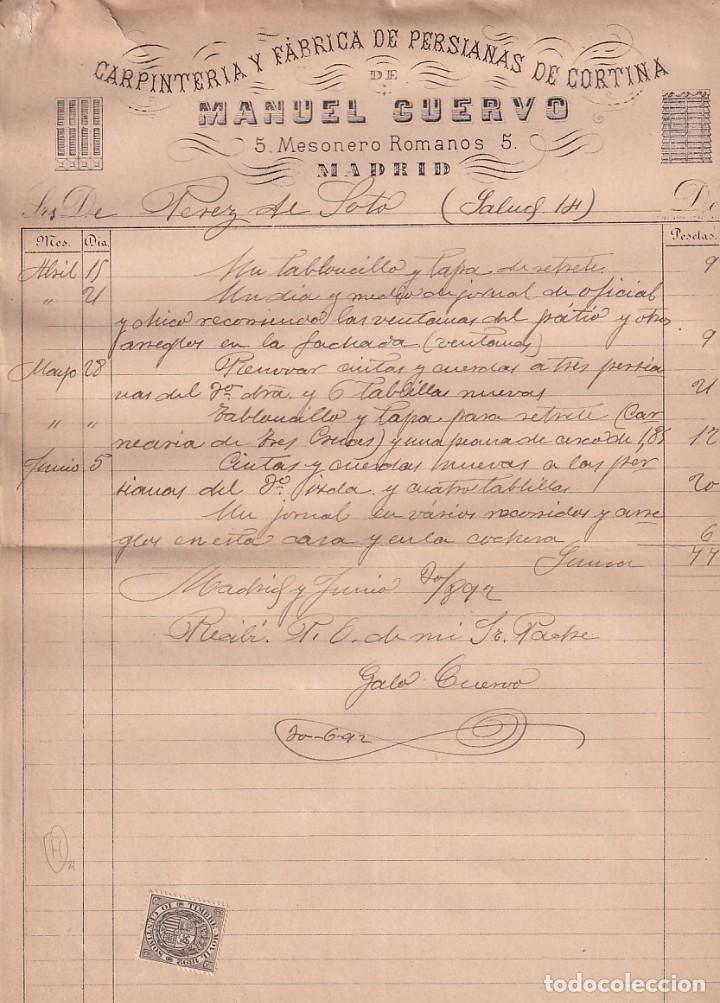 CARPINTERIA Y FÁBRICA DE PERSIANAS DE CORTINA
DE
MANUEL CUERVO
5. Mesonero Romanos 5.
MADRID
Srs De Perez de Soto (Salud 14) De
Mes. Día. Pesetas.
Abril 15 Un tabloncillo y tapa de retrete. 9
" 21 Un dia y medio de jornal de oficial
y chico recorriendo las ventanas del pátio y otros
arreglos en la fachada (ventanas) 9
Mayo 28 Renovar cintas y cuerdas a tres persia
nas del 2º dra. y 6 tablillas nuevas 21
" " Tabloncillo y tapa para retrete (Car
neceria de Tres Cruces) y una peana de arco de 1,85 12
Junio 5 Cintas y cuerdas nuevas a las per
sianas del 2º izda. y cuatro tablillas 20
Un jornal en vários recorridos y arre
glos en esta casa y en la cochera 6
Suma 77
Madrid y Junio 20/892
Recibí. P. O. de mi Sr. Padre
Galo Cuervo
20-6-92
H
TIMBRE MOVIL 1892
10 CENTIMOS
todocoleccion
todocoleccion.net